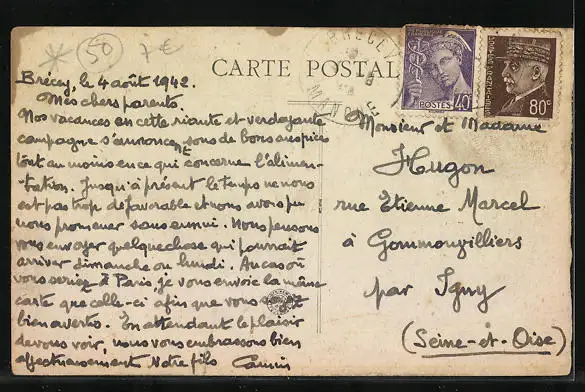 50 7€
CARTE POSTALE
BRECEY
MANCHE
POSTES 40c
80c
Brécey, le 4 août 1942.
Mes chers parents.
Nos vacances en cette riante et verdoyante
campagne s'annoncent sous de bons auspices
tout au moins en ce qui concerne l'alimen-
tation. Jusqu'à présent le temps ne nous
est pas trop défavorable et nous avons pu
nous promener sans ennui. Nous pensons
vous envoyer quelque chose qui pourrait
arriver dimanche ou lundi. Au cas où
vous seriez à Paris, je vous envoie la même
carte que celle-ci afin que vous soyez
bien avertis. En attendant le plaisir
de vous voir, nous vous embrassons bien
affectueusement Notre fils
Monsieur et Madame
Hugon
rue Etienne Marcel
à Gommonvilliers
par Igny
(Seine-et-Oise)